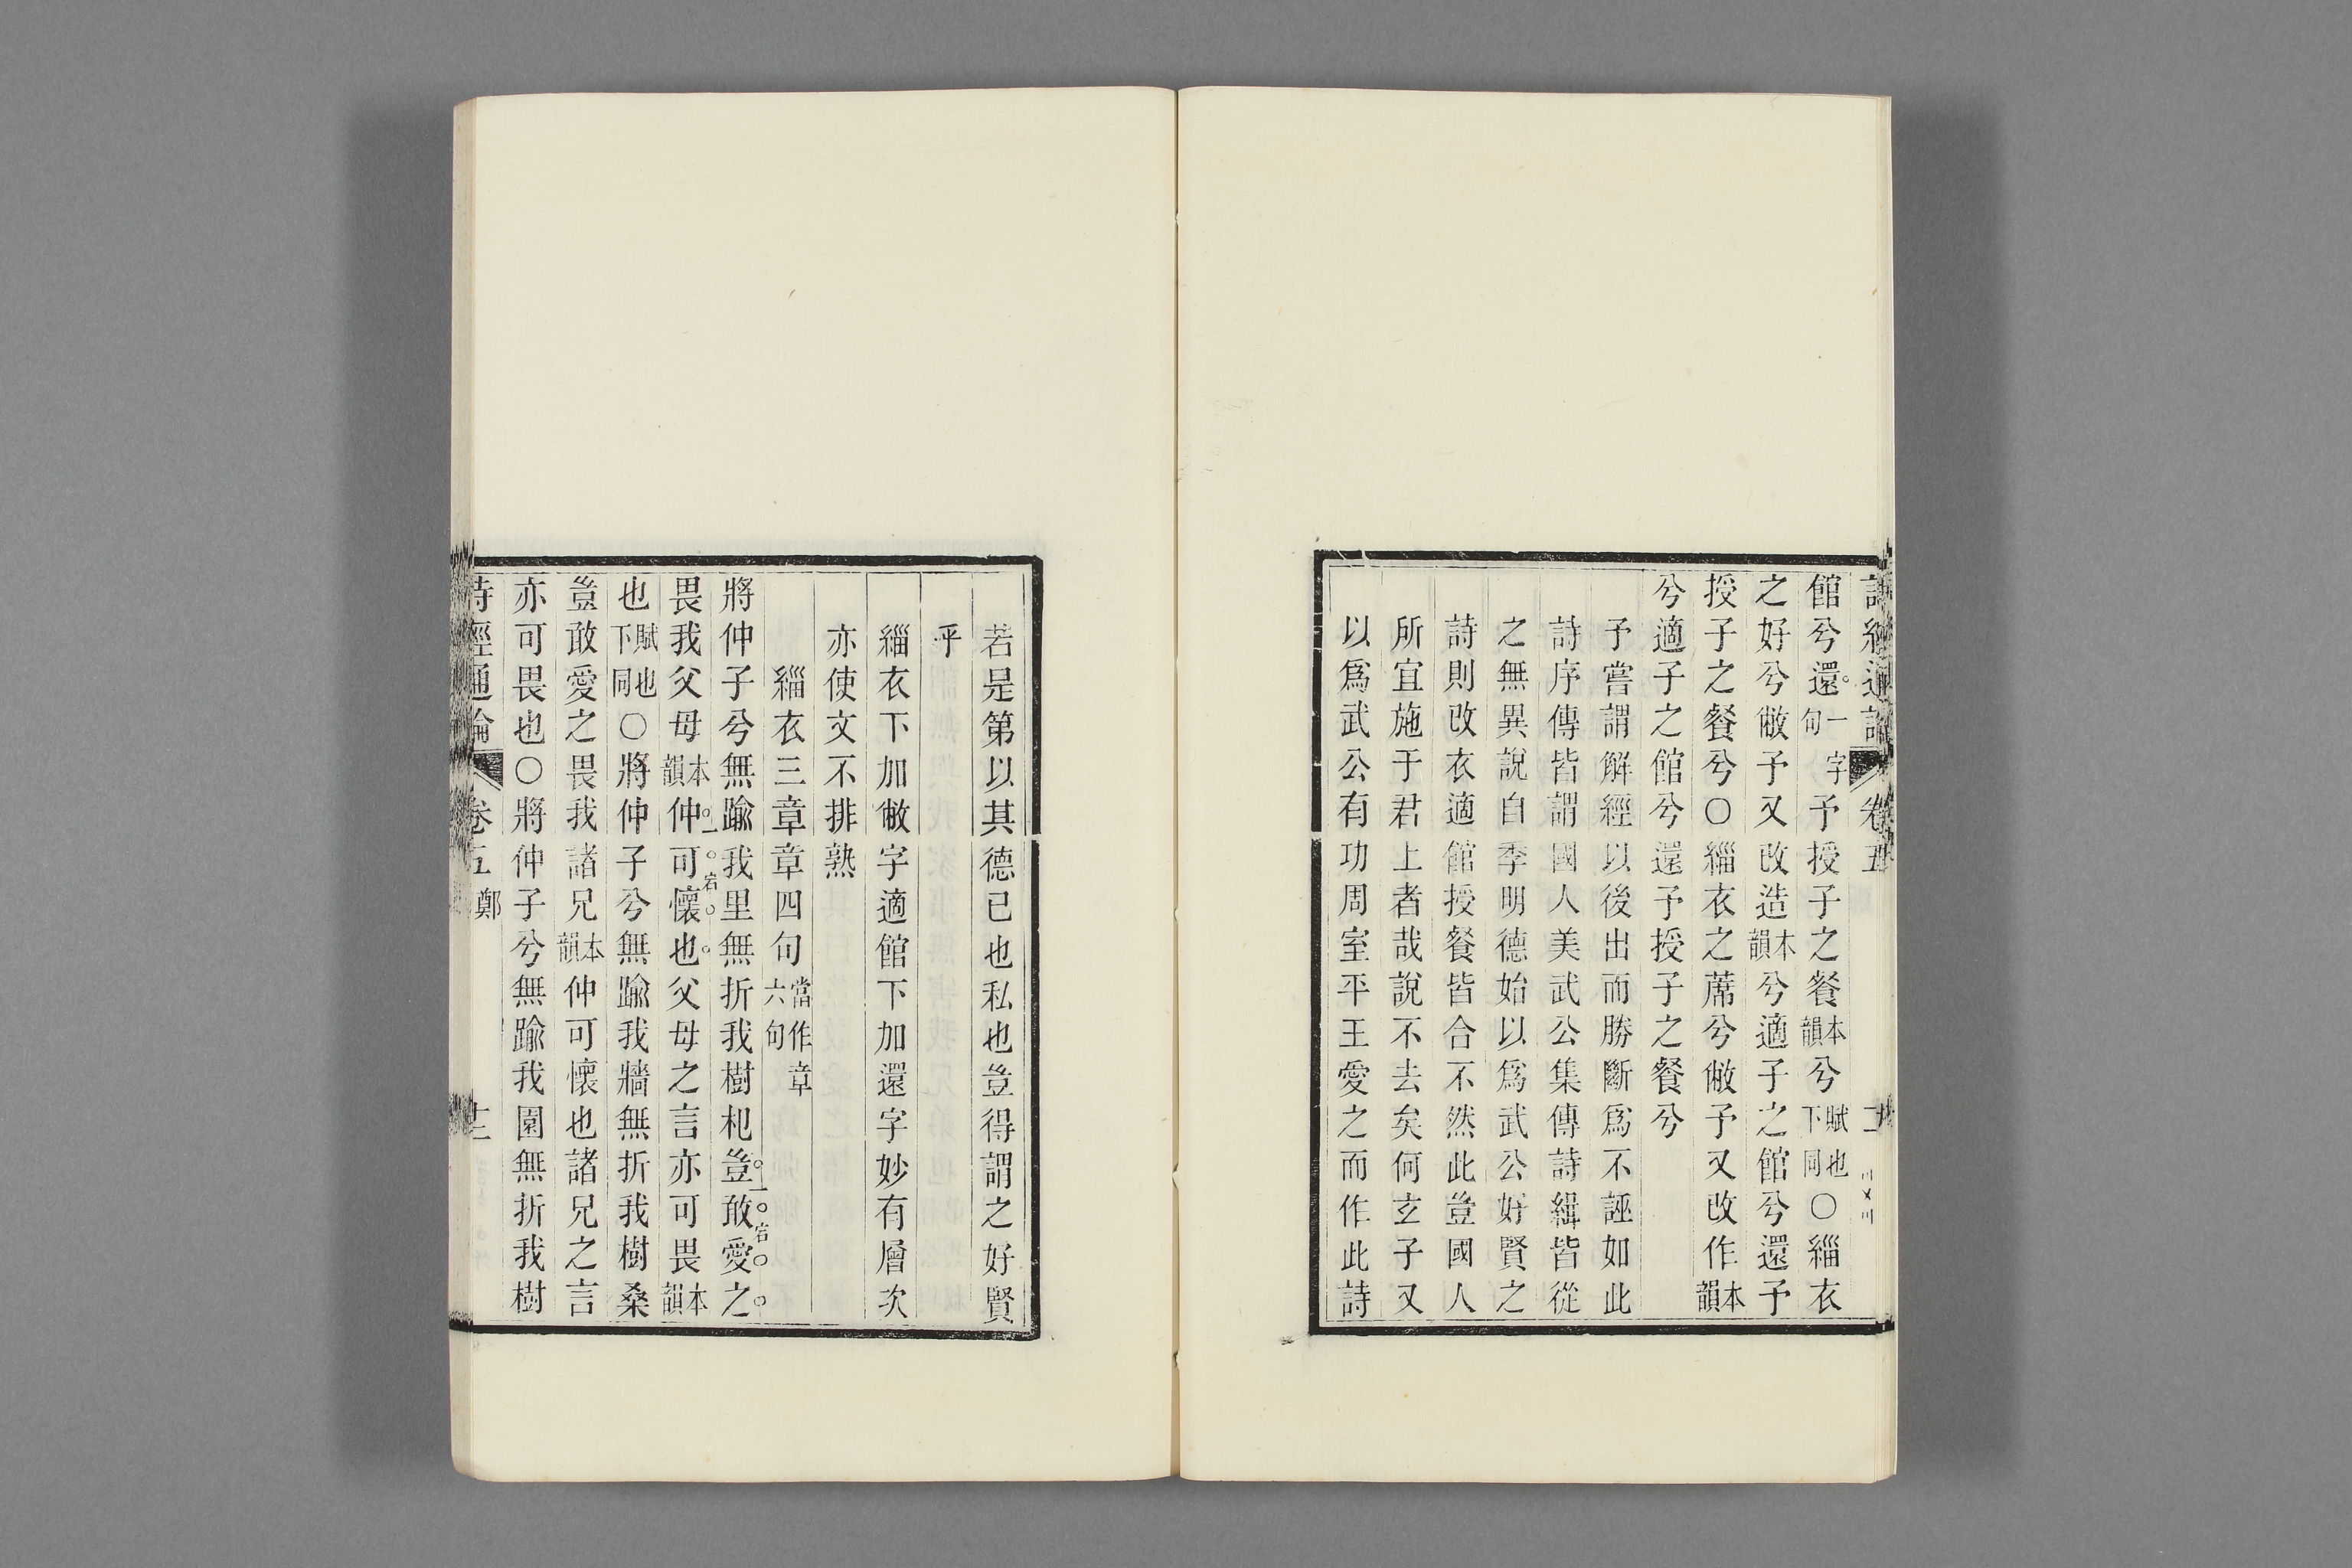 詩經通論 卷五 十一
館兮還一字句予授子之餐本韻兮賦也下同〇緇衣
之好兮敝予又改造本韻兮適子之館兮還予
授子之餐兮〇緇衣之蓆兮敝予又改作本韻
兮適子之館兮還予授子之餐兮
予嘗謂解經以後出而勝斷爲不誣如此
詩序傳皆謂國人美武公集傳詩緝皆從
之無異說自季明德始以爲武公好賢之
詩則改衣適館授餐皆合不然此豈國人
所宜施于君上者哉說不去矣何玄子又
以爲武公有功周室平王愛之而作此詩
若是第以其德已也私也豈得謂之好賢
乎
緇衣下加敝字適館下加還字妙有層次
亦使文不排熟
緇衣三章章四句當作章六句
將仲子兮無踰我里無折我樹杞豈敢愛之
畏我父母本韻仲可懷也父母之言亦可畏本韻
也賦也下同〇將仲子兮無踰我牆無折我樹桑
豈敢愛之畏我諸兄本韻仲可懷也諸兄之言
亦可畏也〇將仲子兮無踰我園無折我樹
詩經通論 卷五 鄭 十二